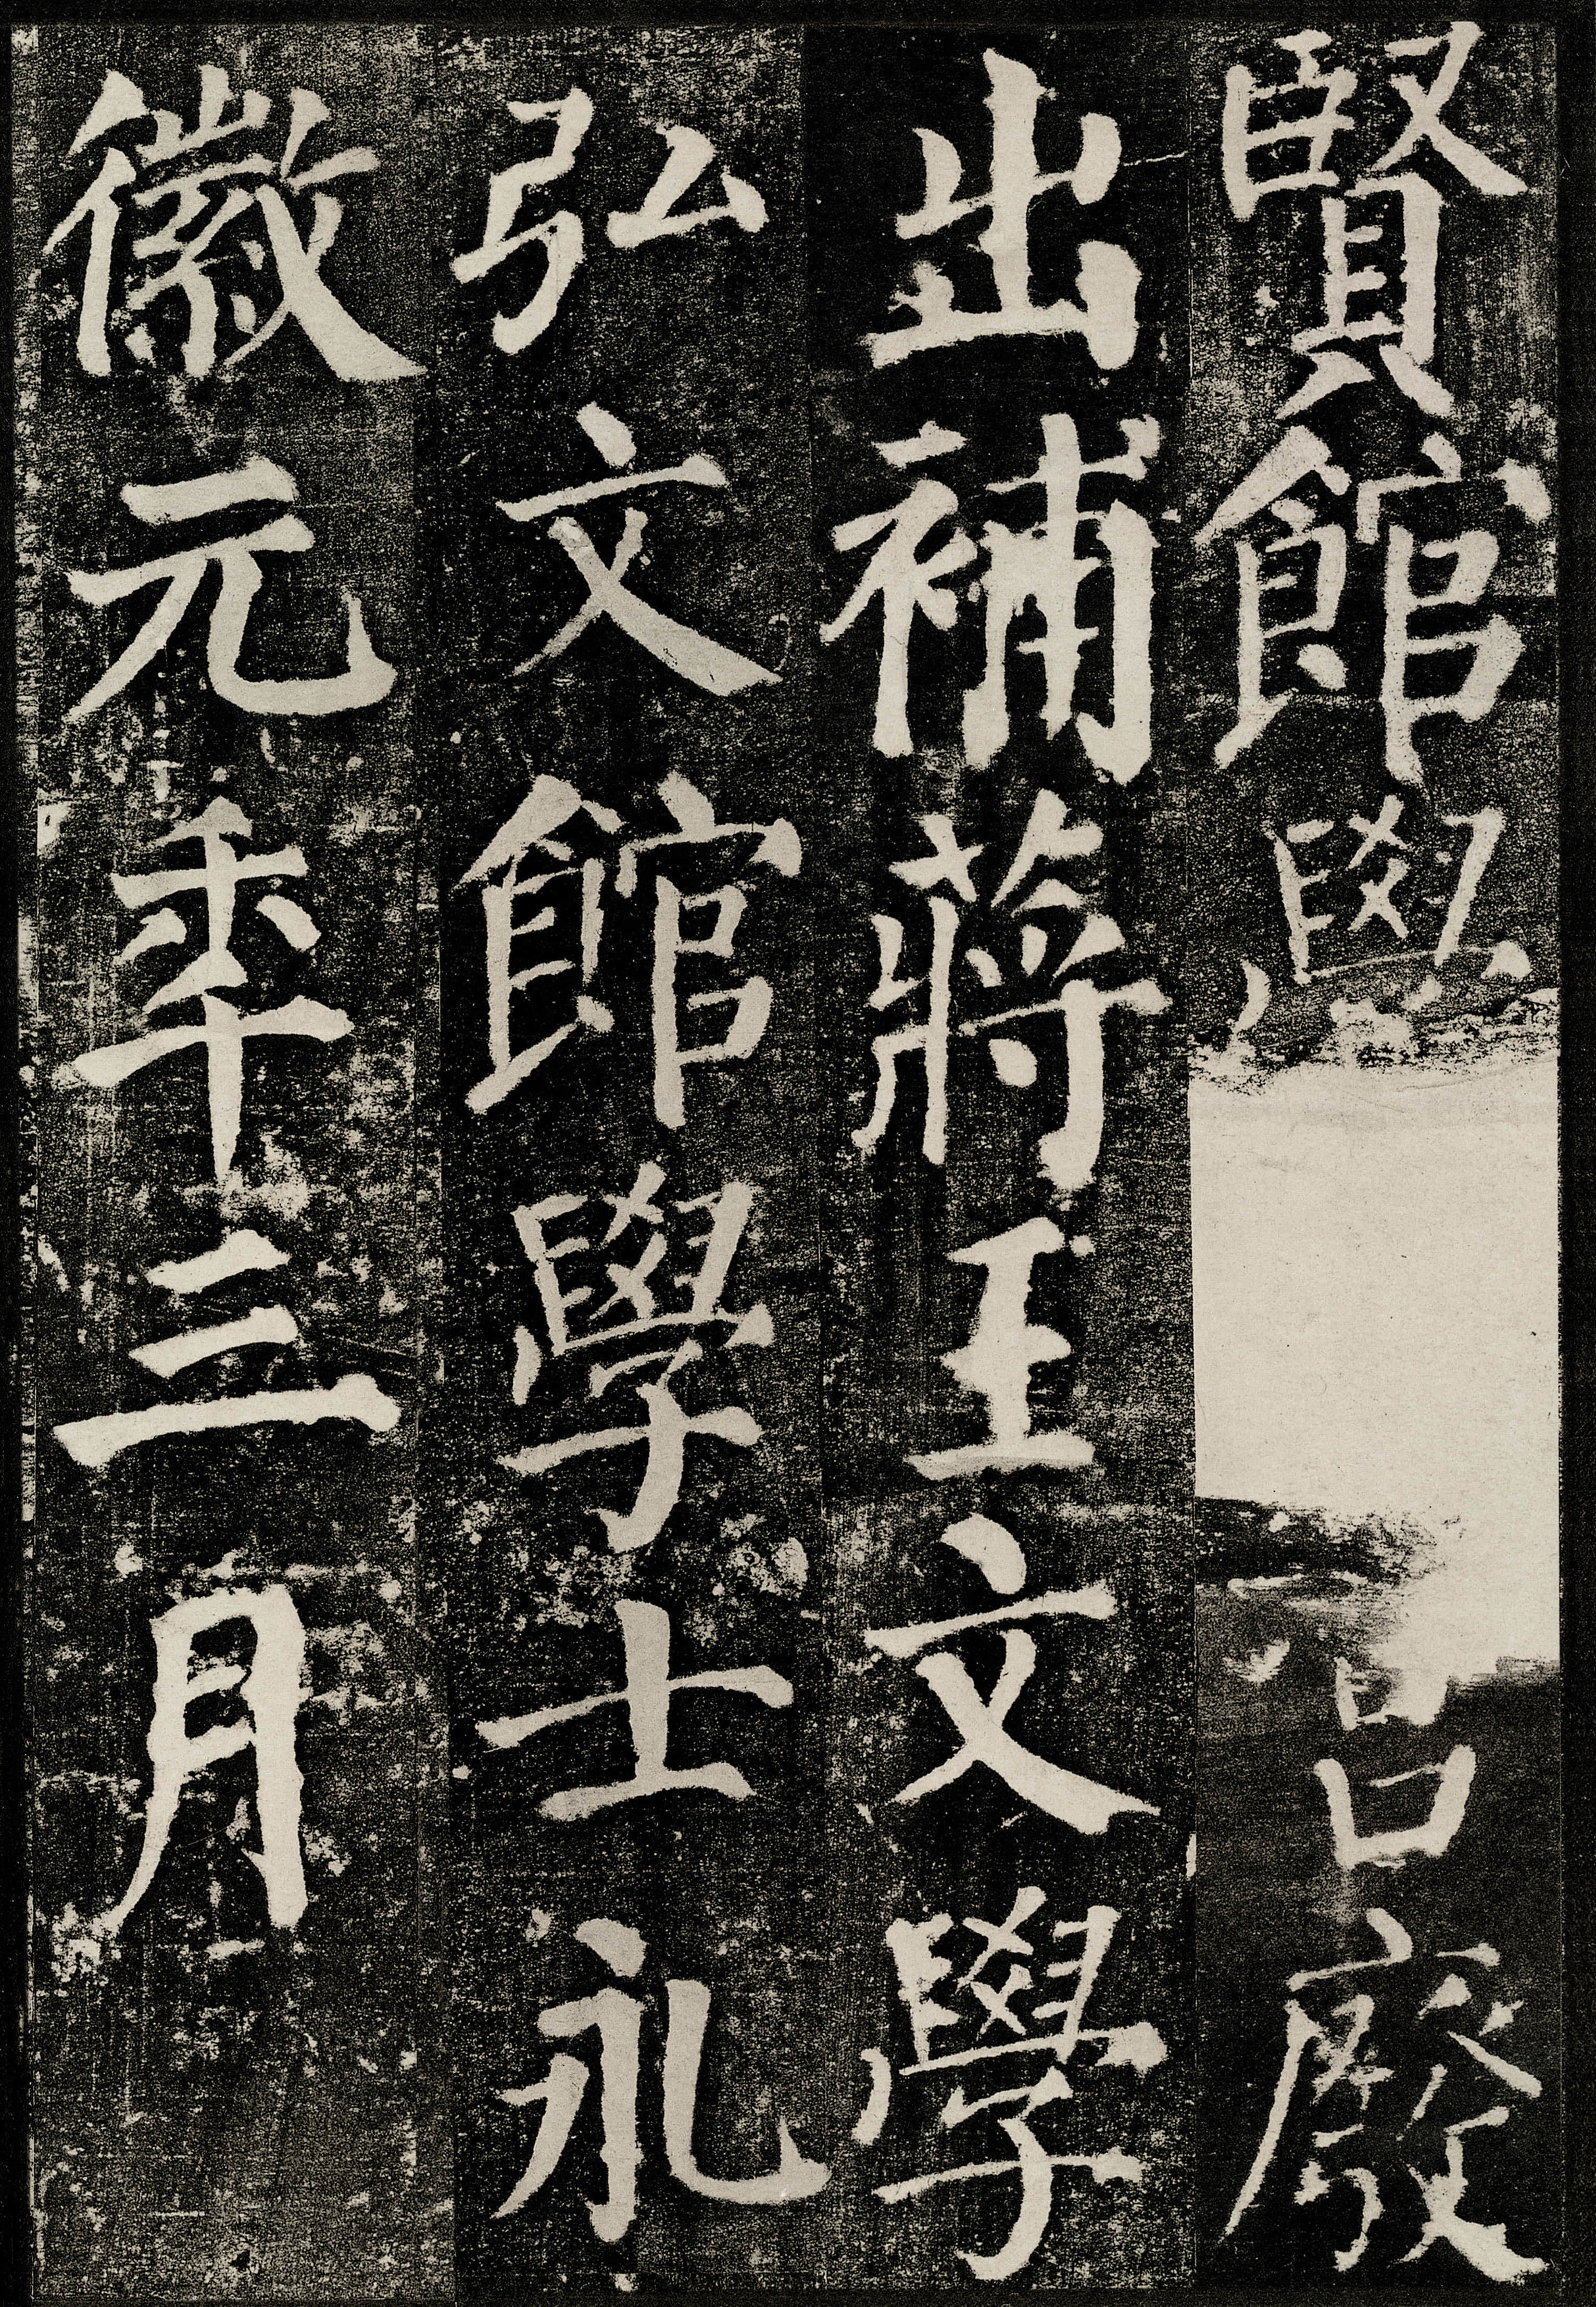 賢館學宮廢
出補蔣王文學
弘文館學士礼
徽元秊三月